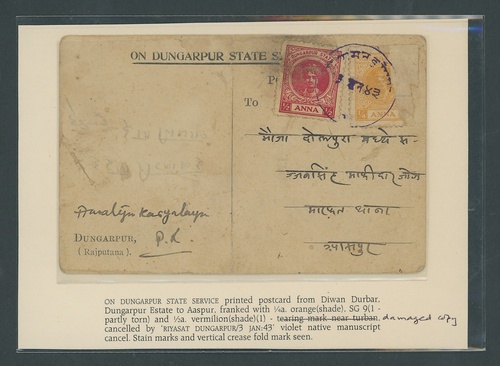 ON DUNGARPUR STATE S
DUNGARPUR STATE
½ ½
ANNA
ANNA
To
मौजा दोलपुरा मध्ये स-
मारफत थाना
आसपुर
DUNGARPUR,
(Rajputana).
ON DUNGARPUR STATE SERVICE printed postcard from Diwan Durbar,
Dungarpur Estate to Aaspur, franked with ¼a. orange(shade), SG 9(1 -
partly torn) and ½a. vermilion(shade)(1) - tearing mark near turban, damaged copy
cancelled by 'RIYASAT DUNGARPUR/3 JAN:43' violet native manuscript
cancel. Stain marks and vertical crease fold mark seen.